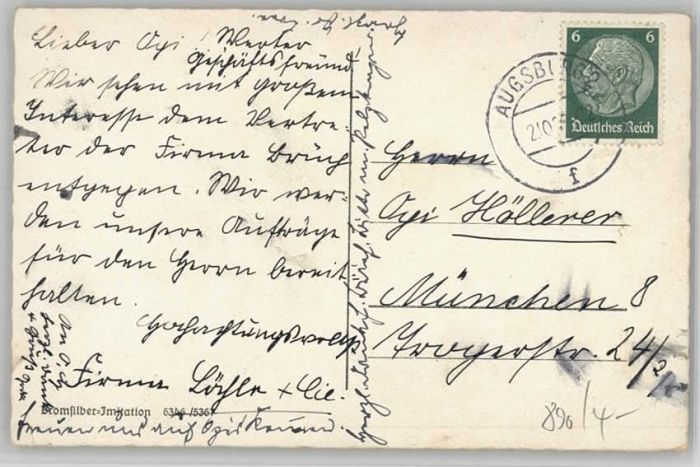 Lieber Opi! Werter
Geschäftsfreund
Wir sehen mit großem
Interesse dem Vertre-
ter der Firma Brüch
entgegen. Wir wer-
den unsere Aufträge
für den Herrn bereit
halten.
Hochachtungsvollst
Firma Löhle + Cie.
freuen uns auf Opis Kommen
Bromsilber-Imitation 6346/5367
6 6
Deutsches Reich
AUGSBURG
f
Herrn
Opi Höllerer
München 8
Trogerstr. 24/2
890/4-